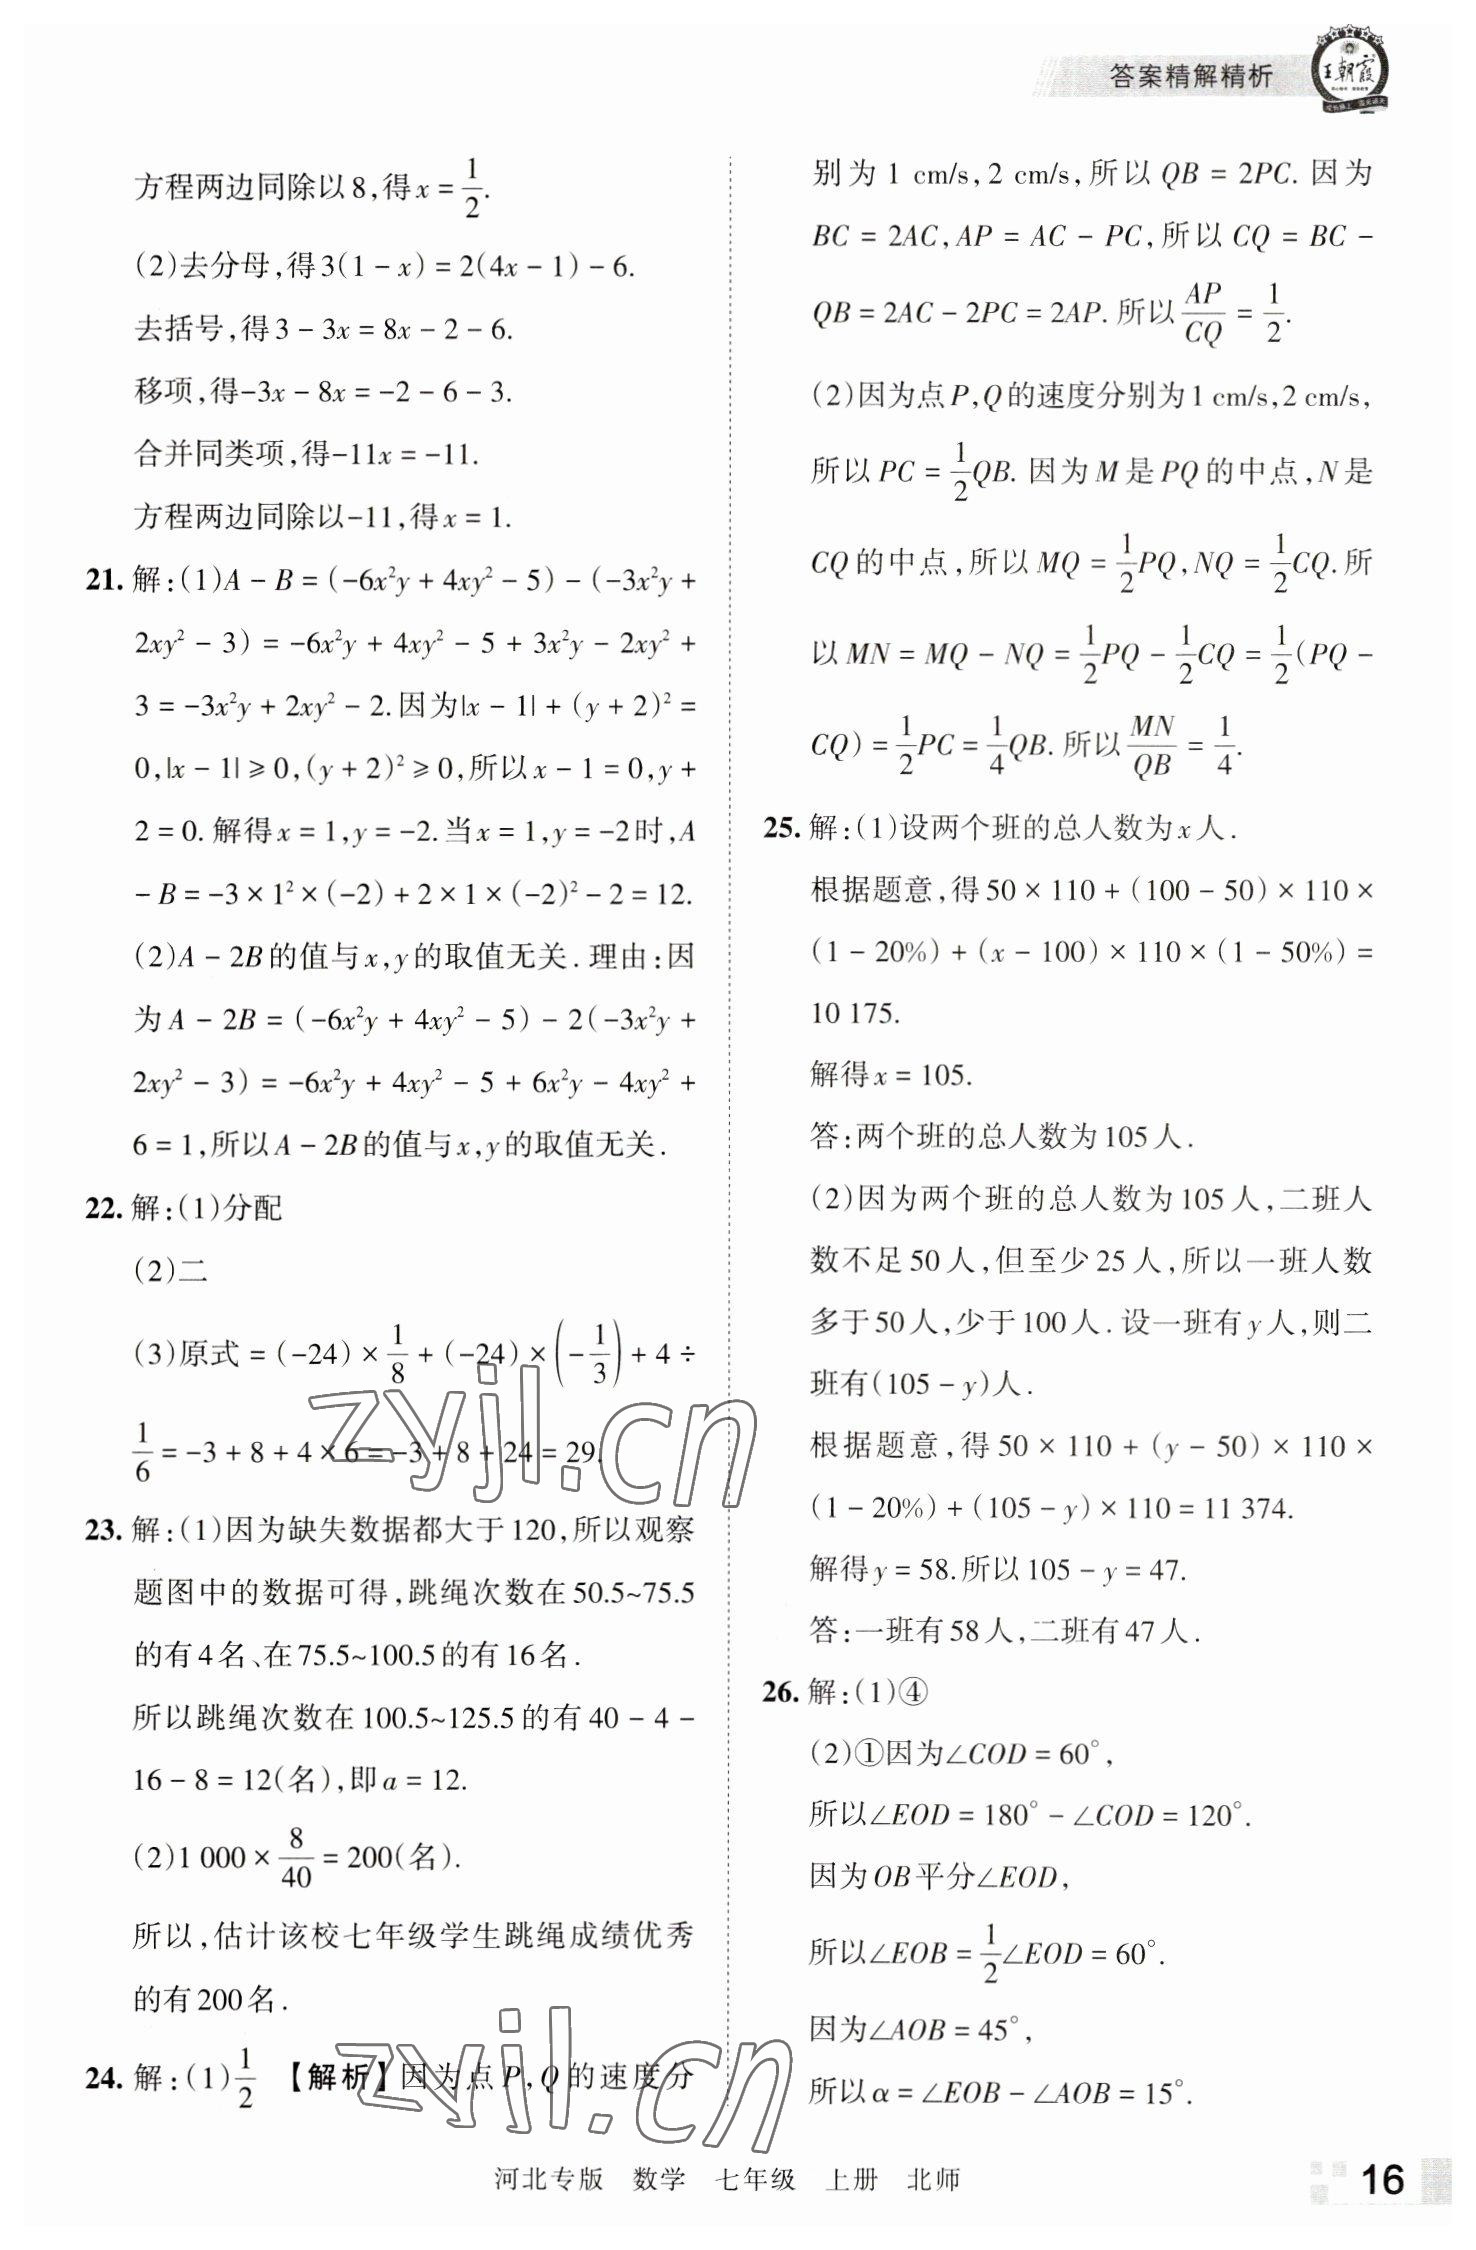 答案精解精析
王朝霞
方程两边同除以8,得x = 1/2.
(2)去分母,得3(1 - x) = 2(4x - 1) - 6.
去括号,得3 - 3x = 8x - 2 - 6.
移项,得-3x - 8x = -2 - 6 - 3.
合并同类项,得-11x = -11.
方程两边同除以-11,得x = 1.
21. 解:(1)A - B = (-6x²y + 4xy² - 5) - (-3x²y +
2xy² - 3) = -6x²y + 4xy² - 5 + 3x²y - 2xy² +
3 = -3x²y + 2xy² - 2.因为|x - 1| + (y + 2)² =
0,|x - 1| ⩾ 0,(y + 2)² ⩾ 0,所以x - 1 = 0,y +
2 = 0.解得x = 1,y = -2.当x = 1,y = -2时,A
- B = -3 × 1² × (-2) + 2 × 1 × (-2)² - 2 = 12.
(2)A - 2B的值与x,y的取值无关.理由:因
为A - 2B = (-6x²y + 4xy² - 5) - 2(-3x²y +
2xy² - 3) = -6x²y + 4xy² - 5 + 6x²y - 4xy² +
6 = 1,所以A - 2B的值与x,y的取值无关.
22. 解:(1)分配
(2)二
(3)原式 = (-24) × 1/8 + (-24) × (-1/3) + 4 ÷
1/6 = -3 + 8 + 4 × 6 = -3 + 8 + 24 = 29.
23. 解:(1)因为缺失数据都大于120,所以观察
题图中的数据可得,跳绳次数在50.5~75.5
的有4名、在75.5~100.5的有16名.
所以跳绳次数在100.5~125.5的有40 - 4 -
16 - 8 = 12(名),即a = 12.
(2)1 000 × 8/40 = 200(名).
所以,估计该校七年级学生跳绳成绩优秀
的有200名.
24. 解:(1)1/2 【解析】因为点P,Q的速度分
别为1 cm/s,2 cm/s,所以QB = 2PC.因为
BC = 2AC,AP = AC - PC,所以CQ = BC -
QB = 2AC - 2PC = 2AP.所以AP/CQ = 1/2.
(2)因为点P,Q的速度分别为1 cm/s,2 cm/s,
所以PC = 1/2QB.因为M是PQ的中点,N是
CQ的中点,所以MQ = 1/2PQ,NQ = 1/2CQ.所
以MN = MQ - NQ = 1/2PQ - 1/2CQ = 1/2(PQ -
CQ) = 1/2PC = 1/4QB.所以MN/QB = 1/4.
25. 解:(1)设两个班的总人数为x人.
根据题意,得50 × 110 + (100 - 50) × 110 ×
(1 - 20%) + (x - 100) × 110 × (1 - 50%) =
10 175.
解得x = 105.
答:两个班的总人数为105人.
(2)因为两个班的总人数为105人,二班人
数不足50人,但至少25人,所以一班人数
多于50人,少于100人.设一班有y人,则二
班有(105 - y)人.
根据题意,得50 × 110 + (y - 50) × 110 ×
(1 - 20%) + (105 - y) × 110 = 11 374.
解得y = 58.所以105 - y = 47.
答:一班有58人,二班有47人.
26. 解:(1)④
(2)①因为∠COD = 60°,
所以∠EOD = 180° - ∠COD = 120°.
因为OB平分∠EOD,
所以∠EOB = 1/2∠EOD = 60°.
因为∠AOB = 45°,
所以α = ∠EOB - ∠AOB = 15°.
zyjl.cn
zyjl.cn
河北专版 数学 七年级 上册 北师
16